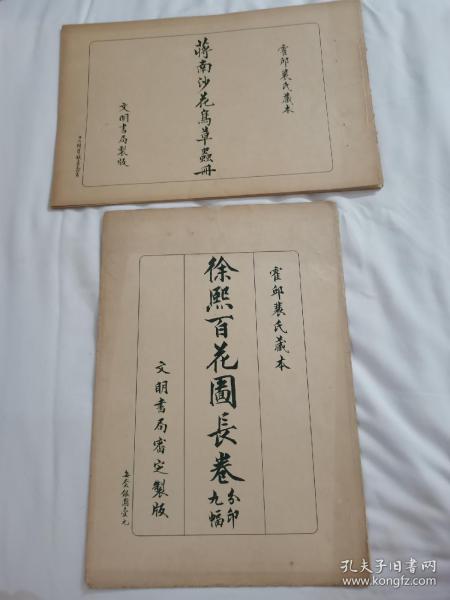 霍邱裴氏藏本
蔣南沙花鳥草蟲冊
文明書局製版
霍邱裴氏藏本
徐熙百花圖長卷
分印
九幅
文明書局審定製版
每套銀圓壹元
孔夫子旧书网
www.kongfz.com